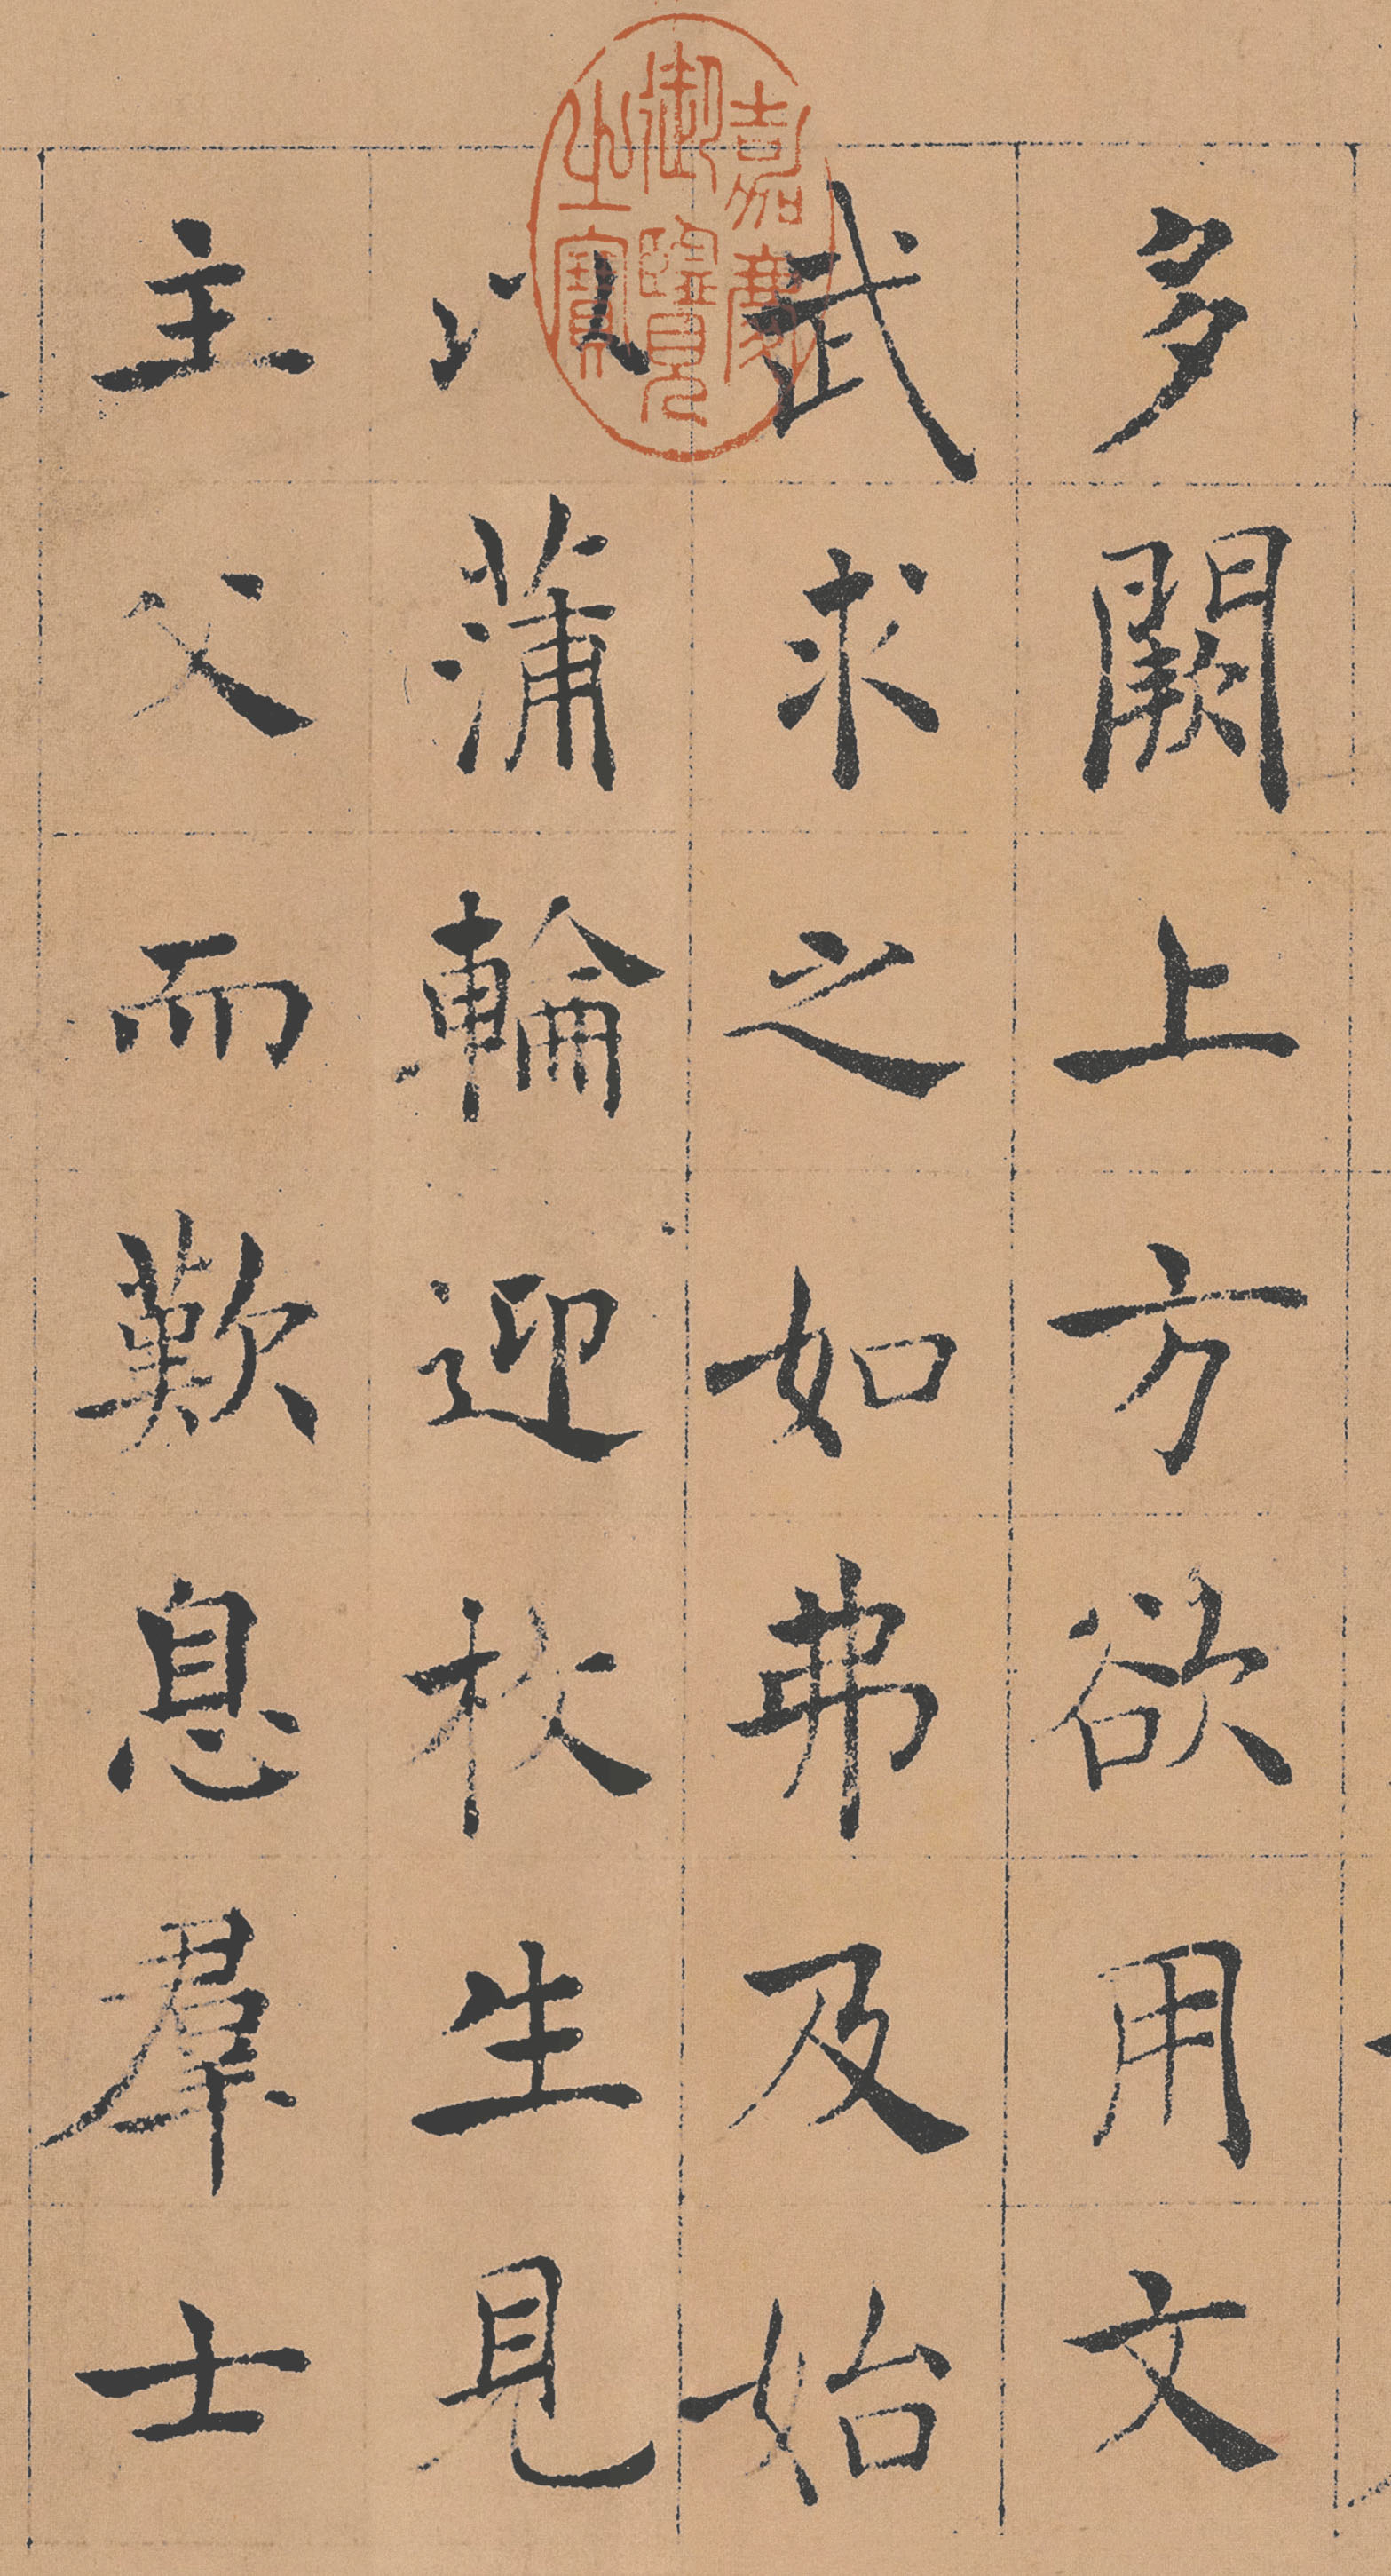 多闕上方欲用文
武求之如弗及始
以蒲輪迎枚生見
主父而歎息羣士
嘉慶御覽之寶